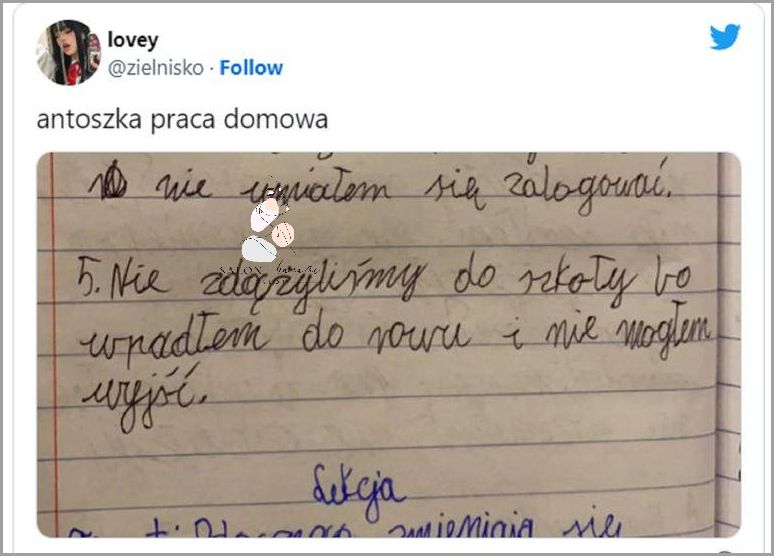 lovey
@zielnisko · Follow
antoszka praca domowa
nie umiałem się zalogować.
5. Nie zdążyliśmy do szkoły bo
wpadłem do rowu i nie mogłem
wyjść.
Lekcja
zmieniają się